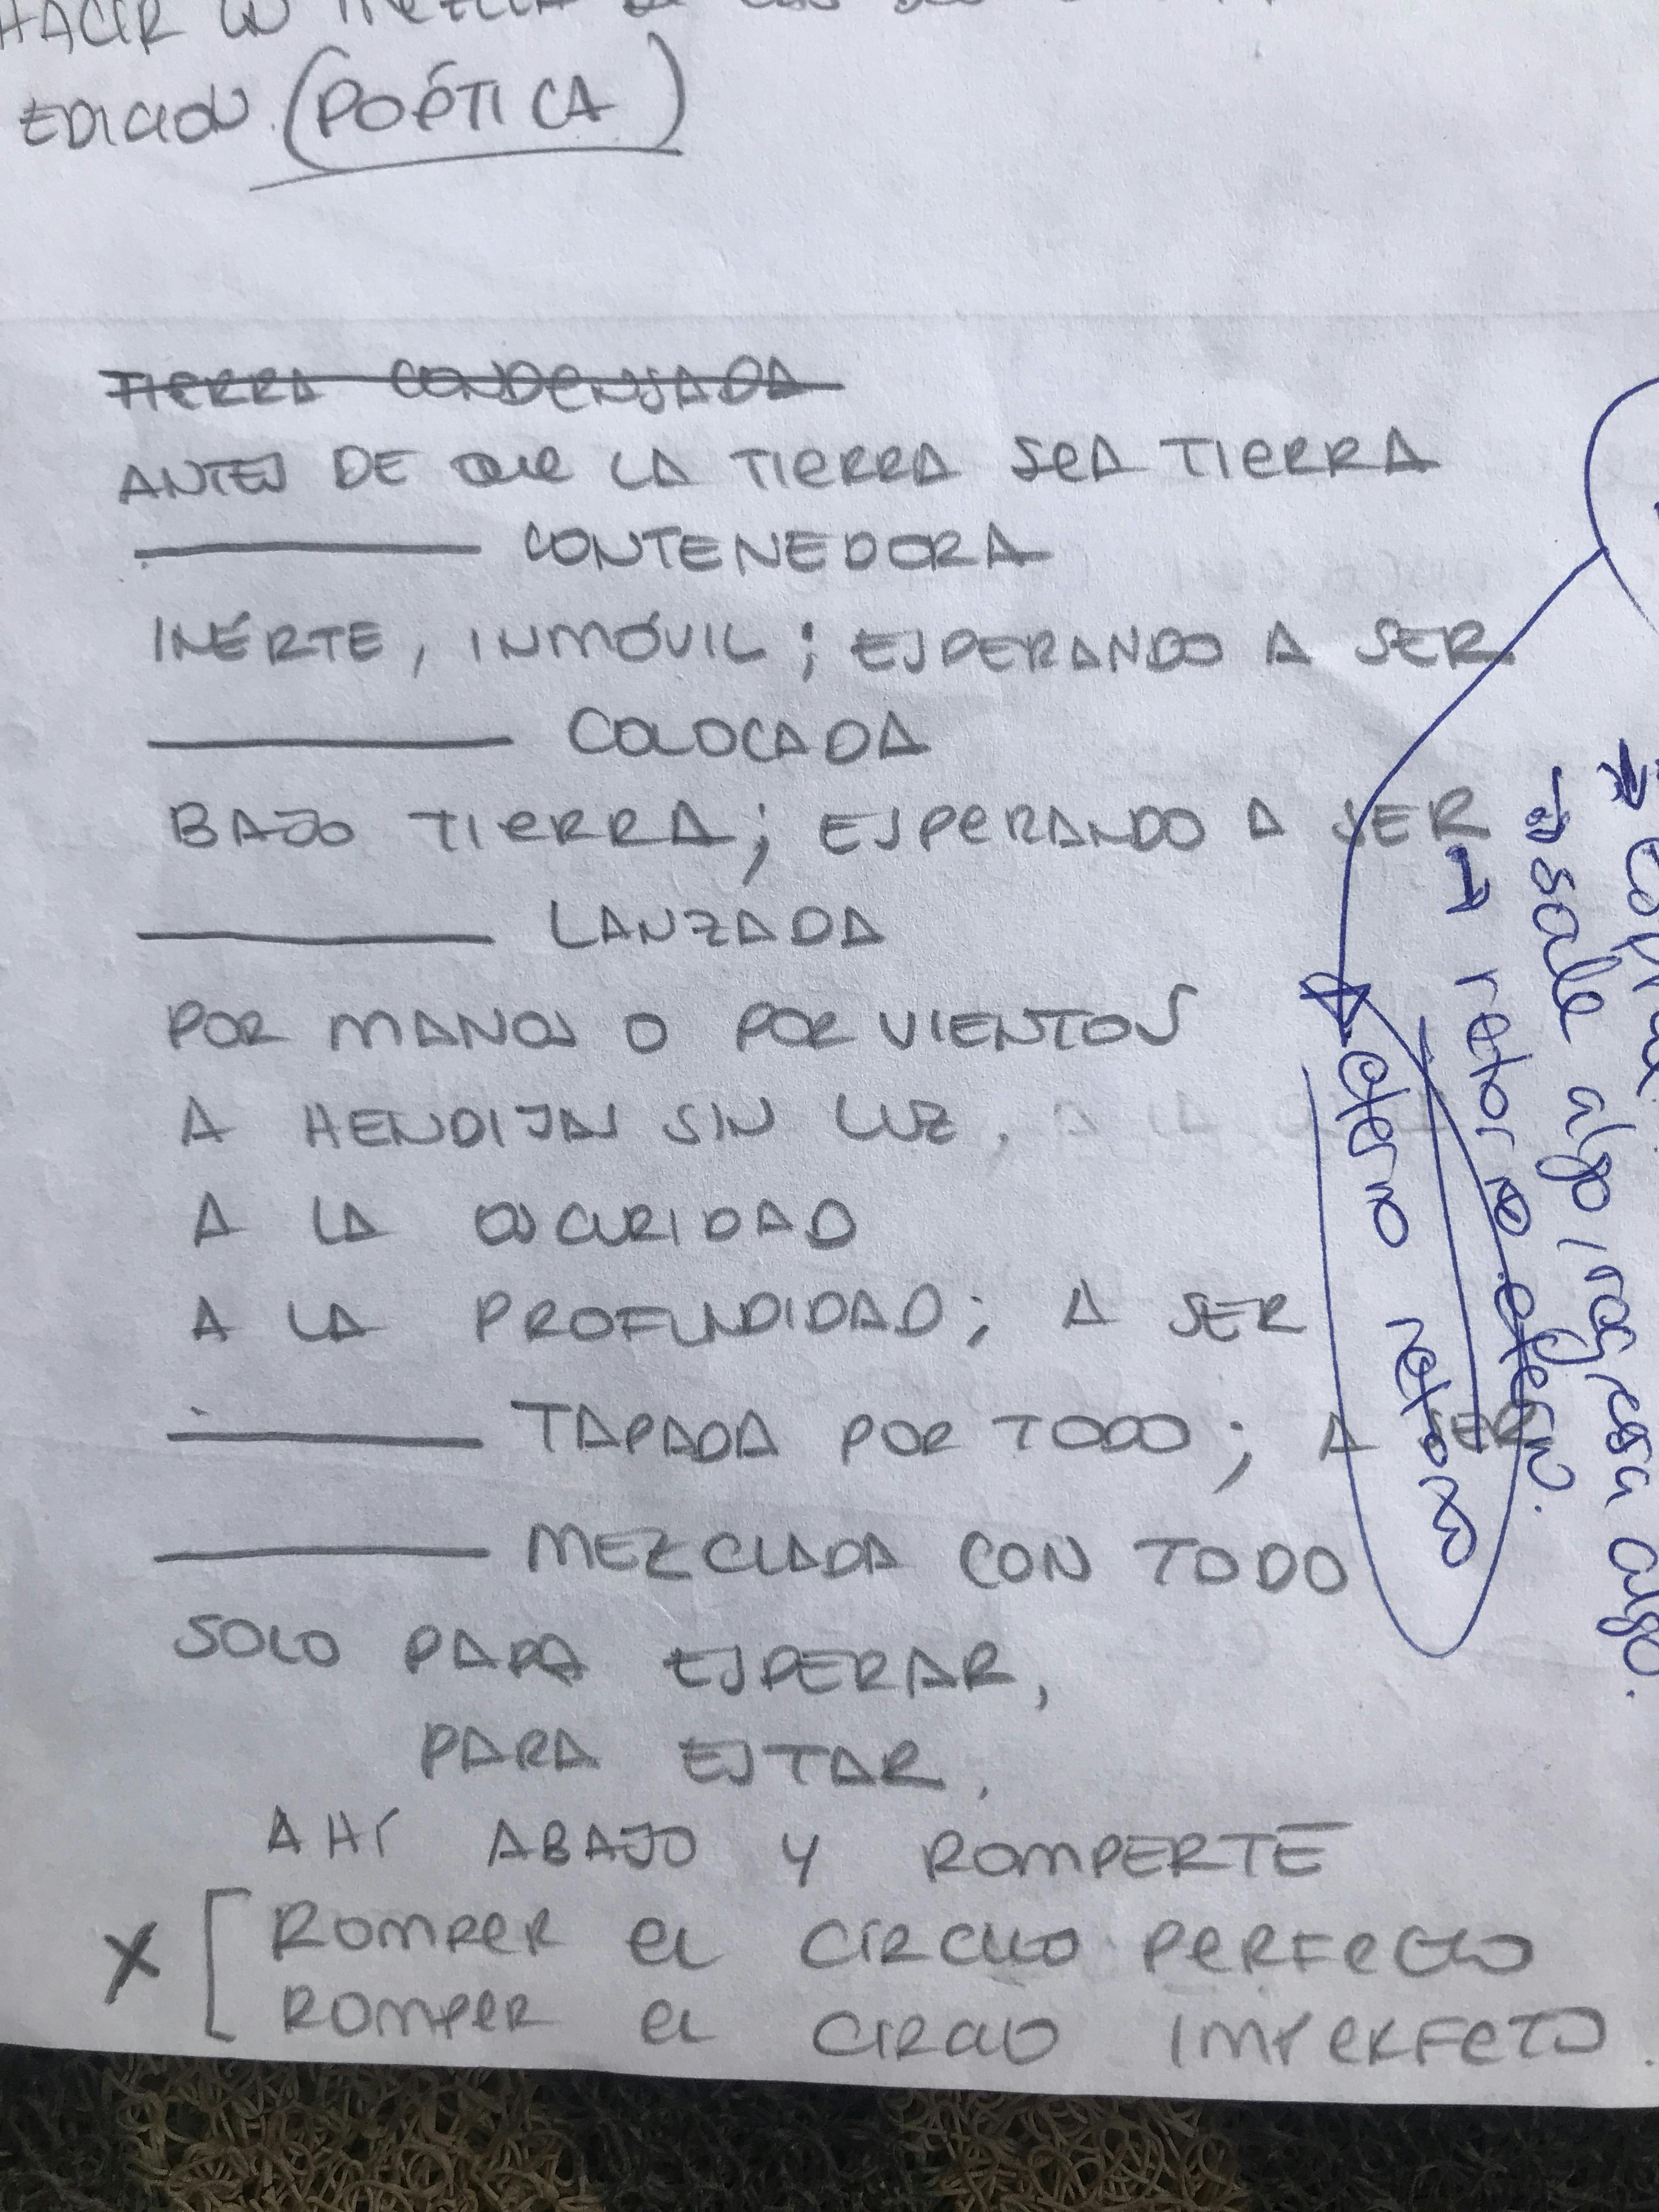 HACER
EDICIÓN (POÉTICA)
TIERRA CONDENSADA
ANTES DE QUE LA TIERRA SEA TIERRA
CONTENEDORA
INÉRTE, INMÓVIL; ESPERANDO A SER
COLOCADA
BAJO TIERRA; ESPERANDO A SER
LANZADA
POR MANOS O POR VIENTOS
A HENDIJAS SIN LUZ,
A LA OSCURIDAD
A LA PROFUNDIDAD; A SER
TAPADA POR TODO; A SER
MEZCLADA CON TODO
SOLO PARA ESPERAR,
PARA ESTAR.
AHÍ ABAJO Y ROMPERTE
X [ROMPER EL CÍRCULO PERFECTO
ROMPER EL CIRCULO IMPERFECTO.
sale algo ingresa algo.
retorno eterno.
eterno retorno